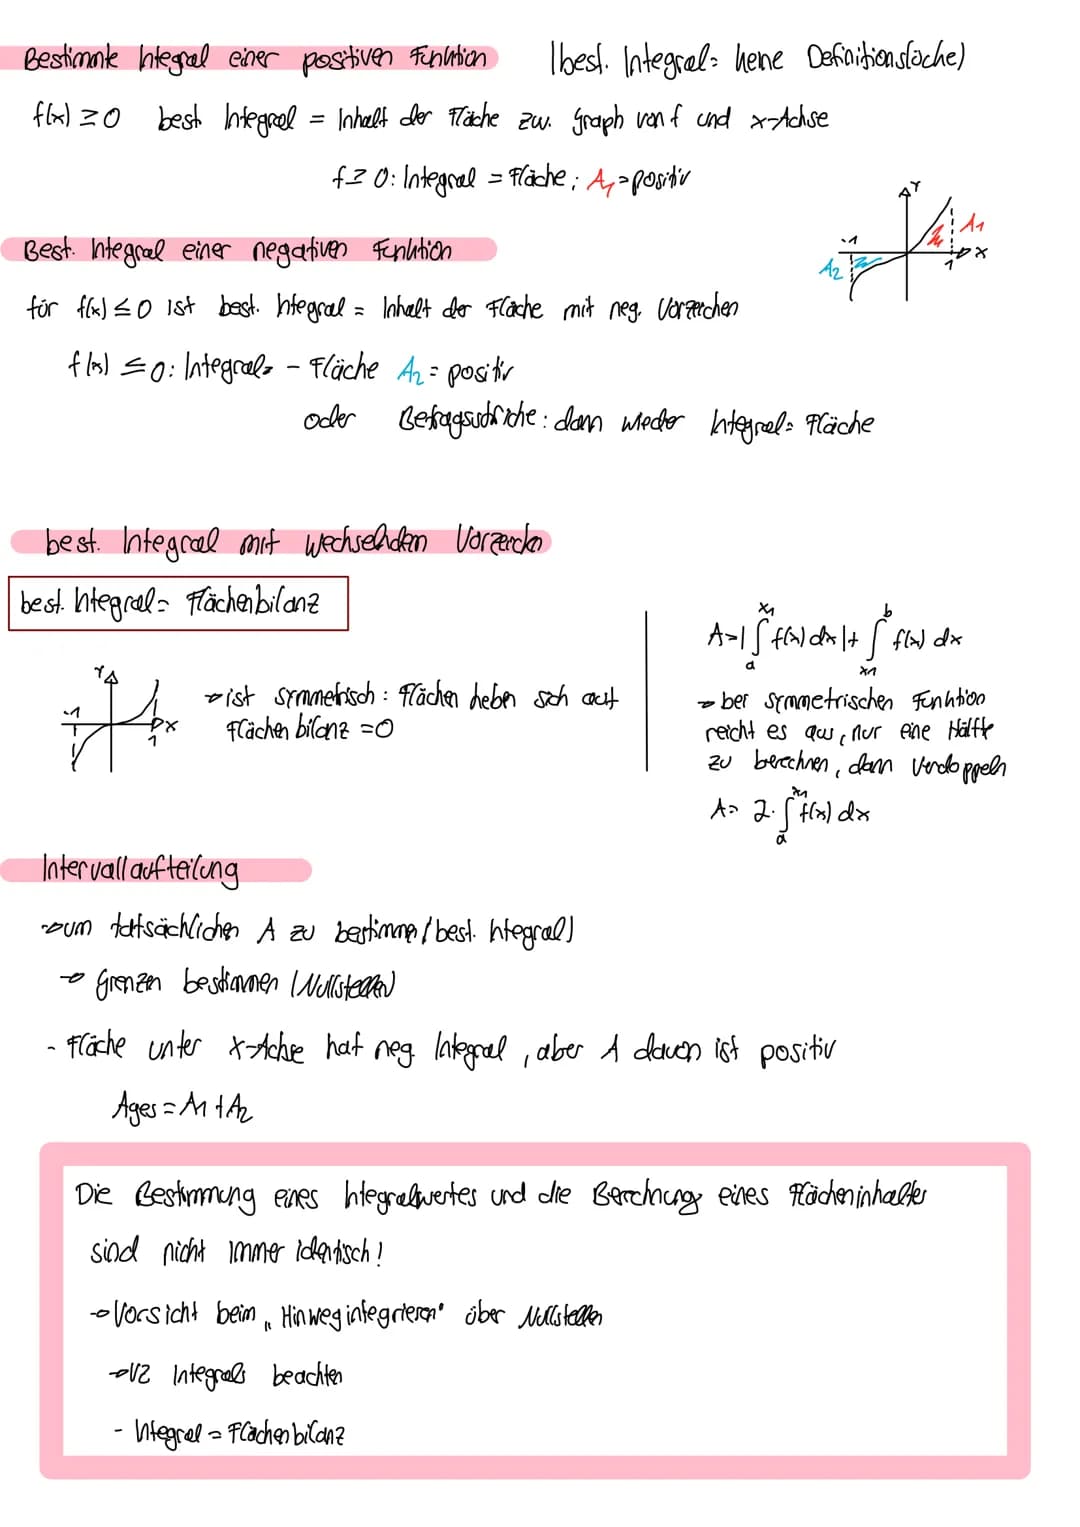 Bestimmte Integral einer positiven Funktion (best. Integral = keine Definitionsfläche)
f(x) ≥ 0 best. Integral = Inhalt der Fläche zw. Graph von f und x-Achse
f ≥ 0: Integral = Fläche; A₁ = positiv
Y
A₁
-1
A₂
1
X
Best. Integral einer negativen Funktion
für f(x) ≤ 0 ist best. Integral = Inhalt der Fläche mit neg. Vorzeichen
f(x) ≤ 0: Integral = - Fläche A₂ = positiv
oder Betragsstriche: dann wieder Integral = Fläche
best. Integral mit wechselnden Vorzeichen
best. Integral = Flächenbilanz
Y
-1
1
X
→ ist symmetrisch: Flächen heben sich auf
Flächenbilanz = 0
A = |∫ₐ^x₁ f(x) dx| + ∫ₓ₁^b f(x) dx
→ bei symmetrischen Funktion
reicht es aus, nur eine Hälfte
zu berechnen, dann verdoppeln
A = 2 · ∫ₐ^x₁ f(x) dx
Intervallaufteilung
→ um tatsächlichen A zu bestimmen (best. Integral)
→ Grenzen bestimmen (Nullstellen)
- Fläche unter x-Achse hat neg. Integral, aber A davon ist positiv
Ages = A₁ + A₂
Die Bestimmung eines Integralwertes und die Berechnung eines Flächeninhaltes
sind nicht immer identisch!
→ Vorsicht beim „Hinwegintegrieren" über Nullstellen
→ VZ Integrals beachten
- Integral = Flächenbilanz